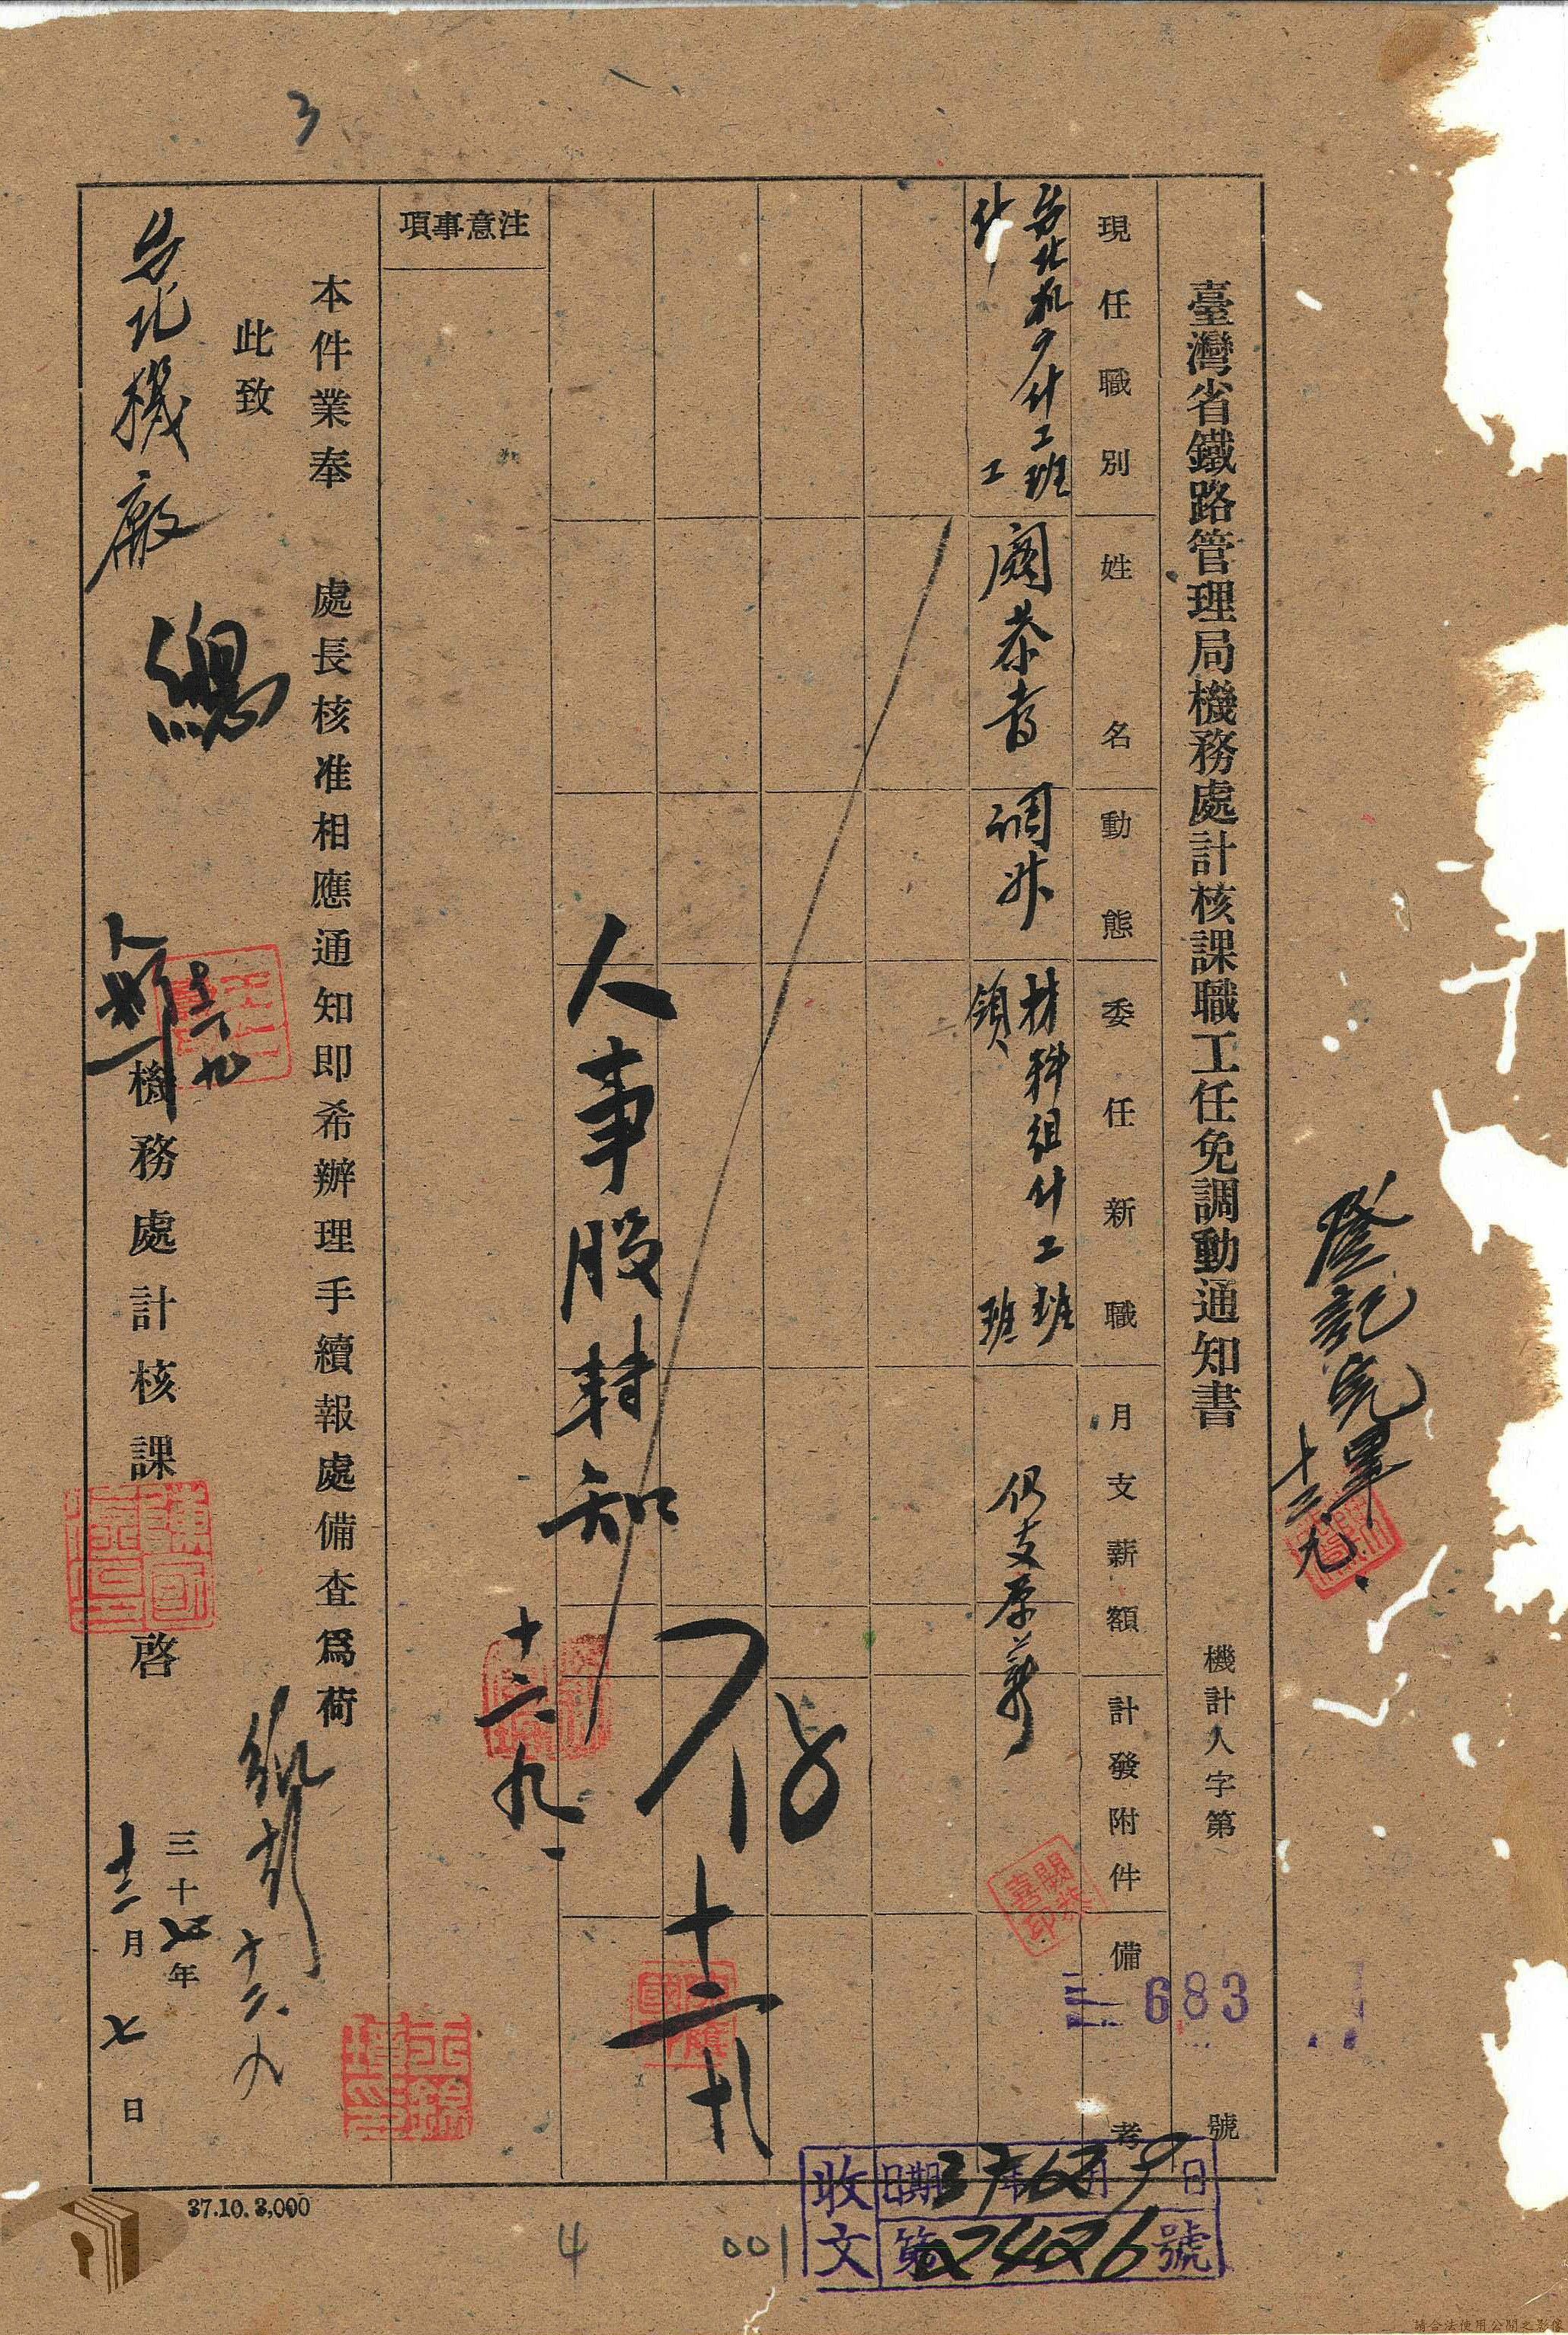 3
登記完畢
十二.九.
臺灣省鐵路管理局機務處計核課職工任免調動通知書
機計人字第
683
號
現任職別
姓名
動態
委任新職
月支薪額
計發附件
備考
台北机厂什工班
什工
闕恭喜
調升
材料組什工班
領班
仍支原薪
闕恭喜印
人事股封知
十二九
十二
注意事項
本件業奉 處長核准相應通知即希辦理手續報處備查爲荷
此致
台北機廠
機務處計核課 啓
三十七年
十二月 七日
十二.九
收文
日期 37年12月9日
第02426號
37.10.3,000
4
001
請合法使用公開之影像